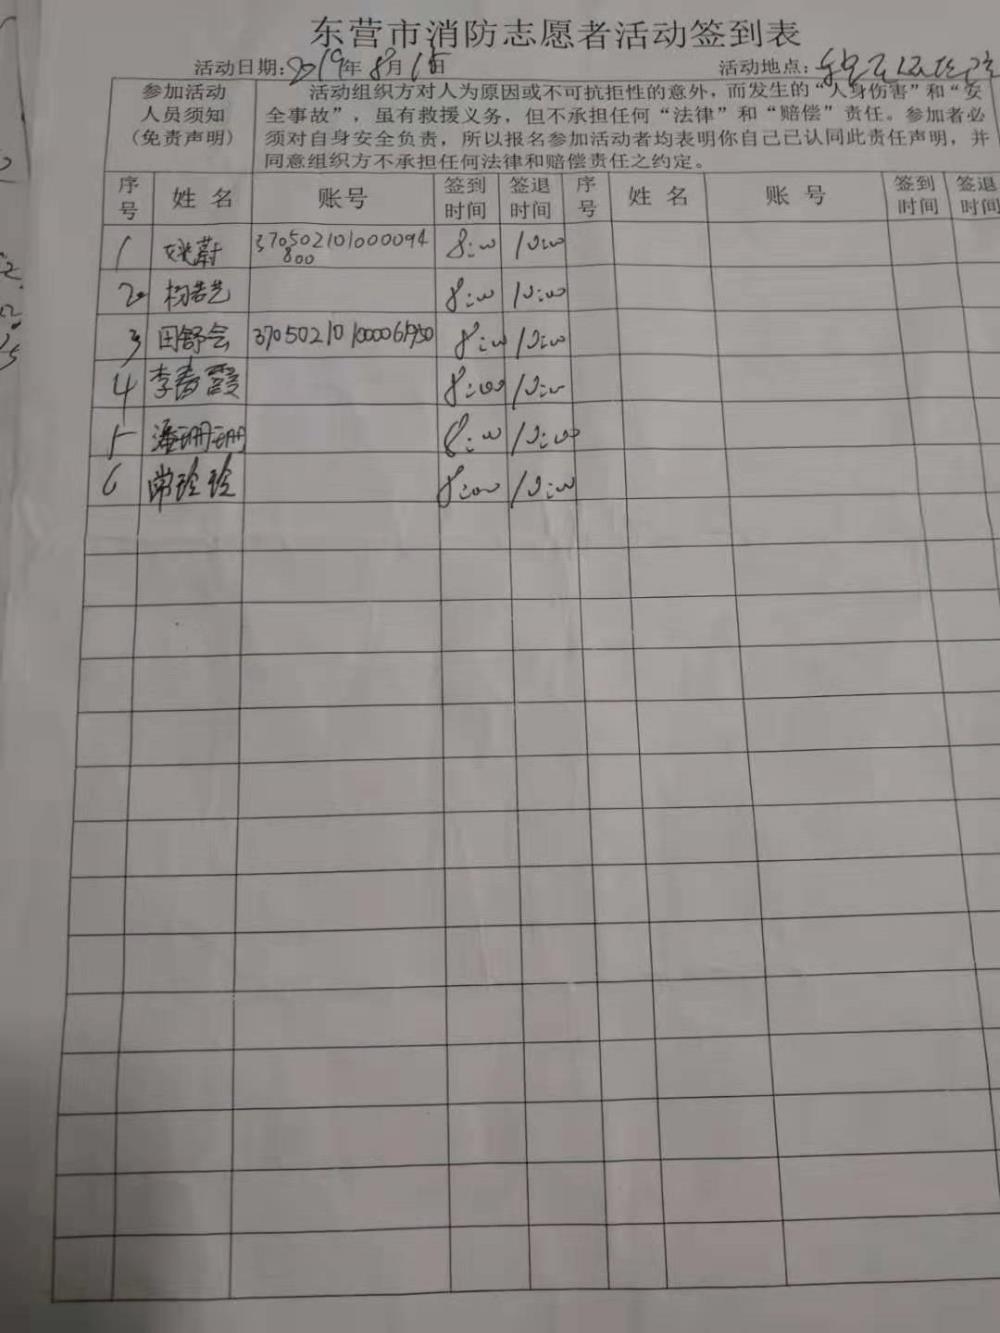 东营市消防志愿者活动签到表
活动日期:2019年8月15日 活动地点:
参加活动人员须知(免责声明)
活动组织方对人为原因或不可抗拒性的意外，而发生的“人身伤害”和“安
全事故”，虽有救援义务，但不承担任何“法律”和“赔偿”责任。参加者必
须对自身安全负责，所以报名参加活动者均表明你自己已认同此责任声明，并
同意组织方不承担任何法律和赔偿责任之约定。
序号 姓 名 账号 签到时间 签退时间 序号 姓 名 账 号 签到时间 签退时间
1 姚蔚 370502101000094800 8:00 10:00
2 杨若艺 8:00 10:00
3 田舒会 8:00 10:00
4 李春霞 8:00 10:00
5 潘珊珊 8:00 10:00
6 常玲玲 8:00 10:00